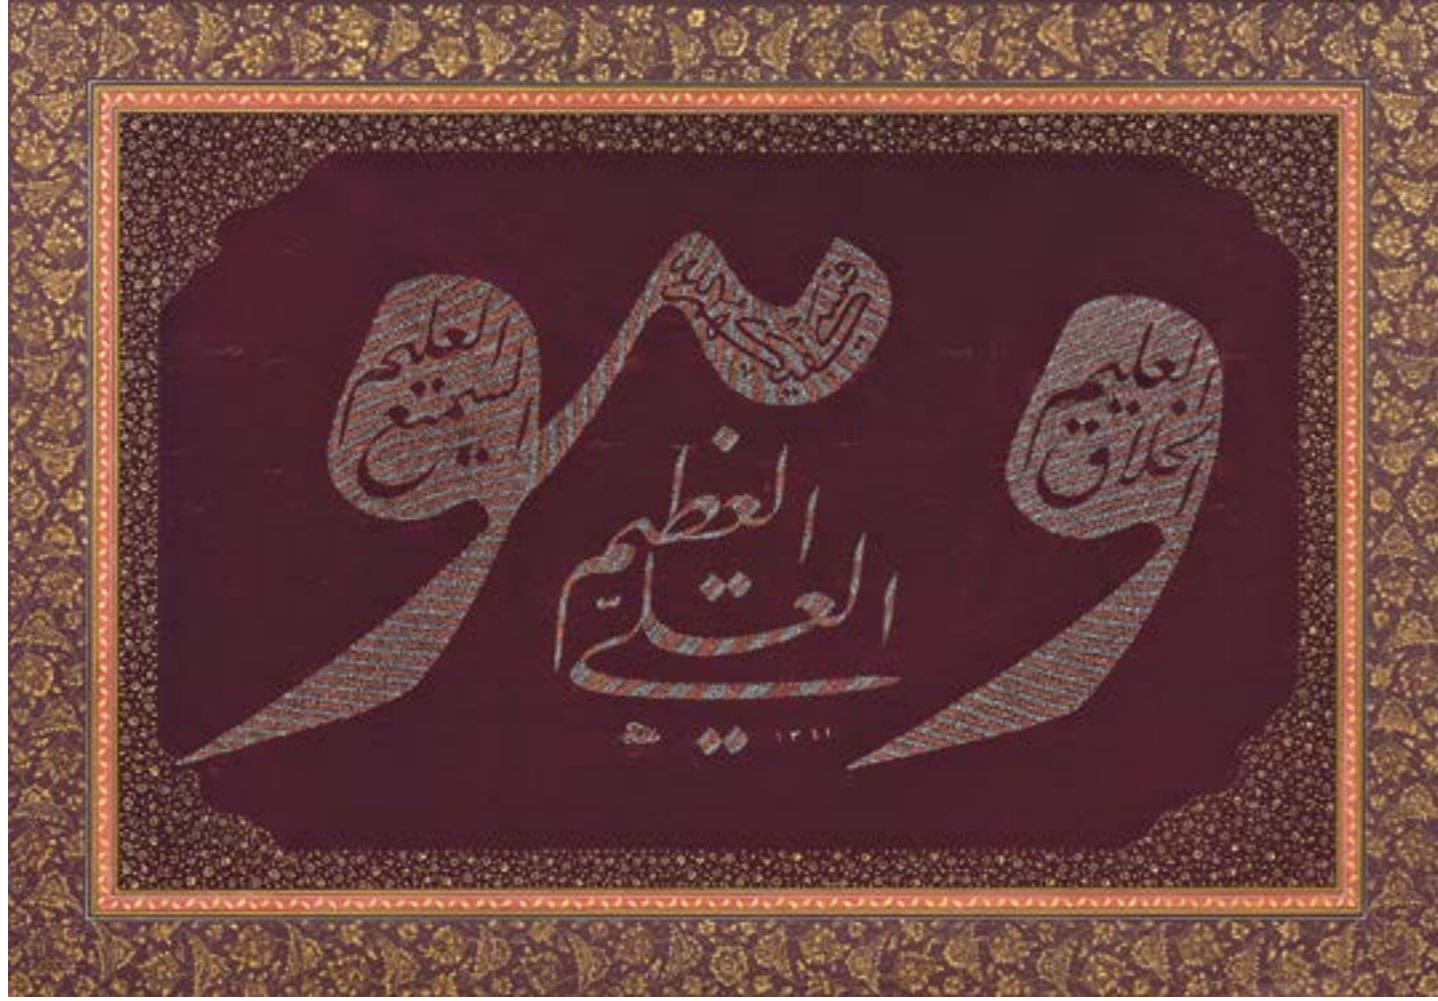 وهو
الخلاق
العليم
فسيكفيكهم الله
السميع
العليم
العلي
العظيم
١٣٤١